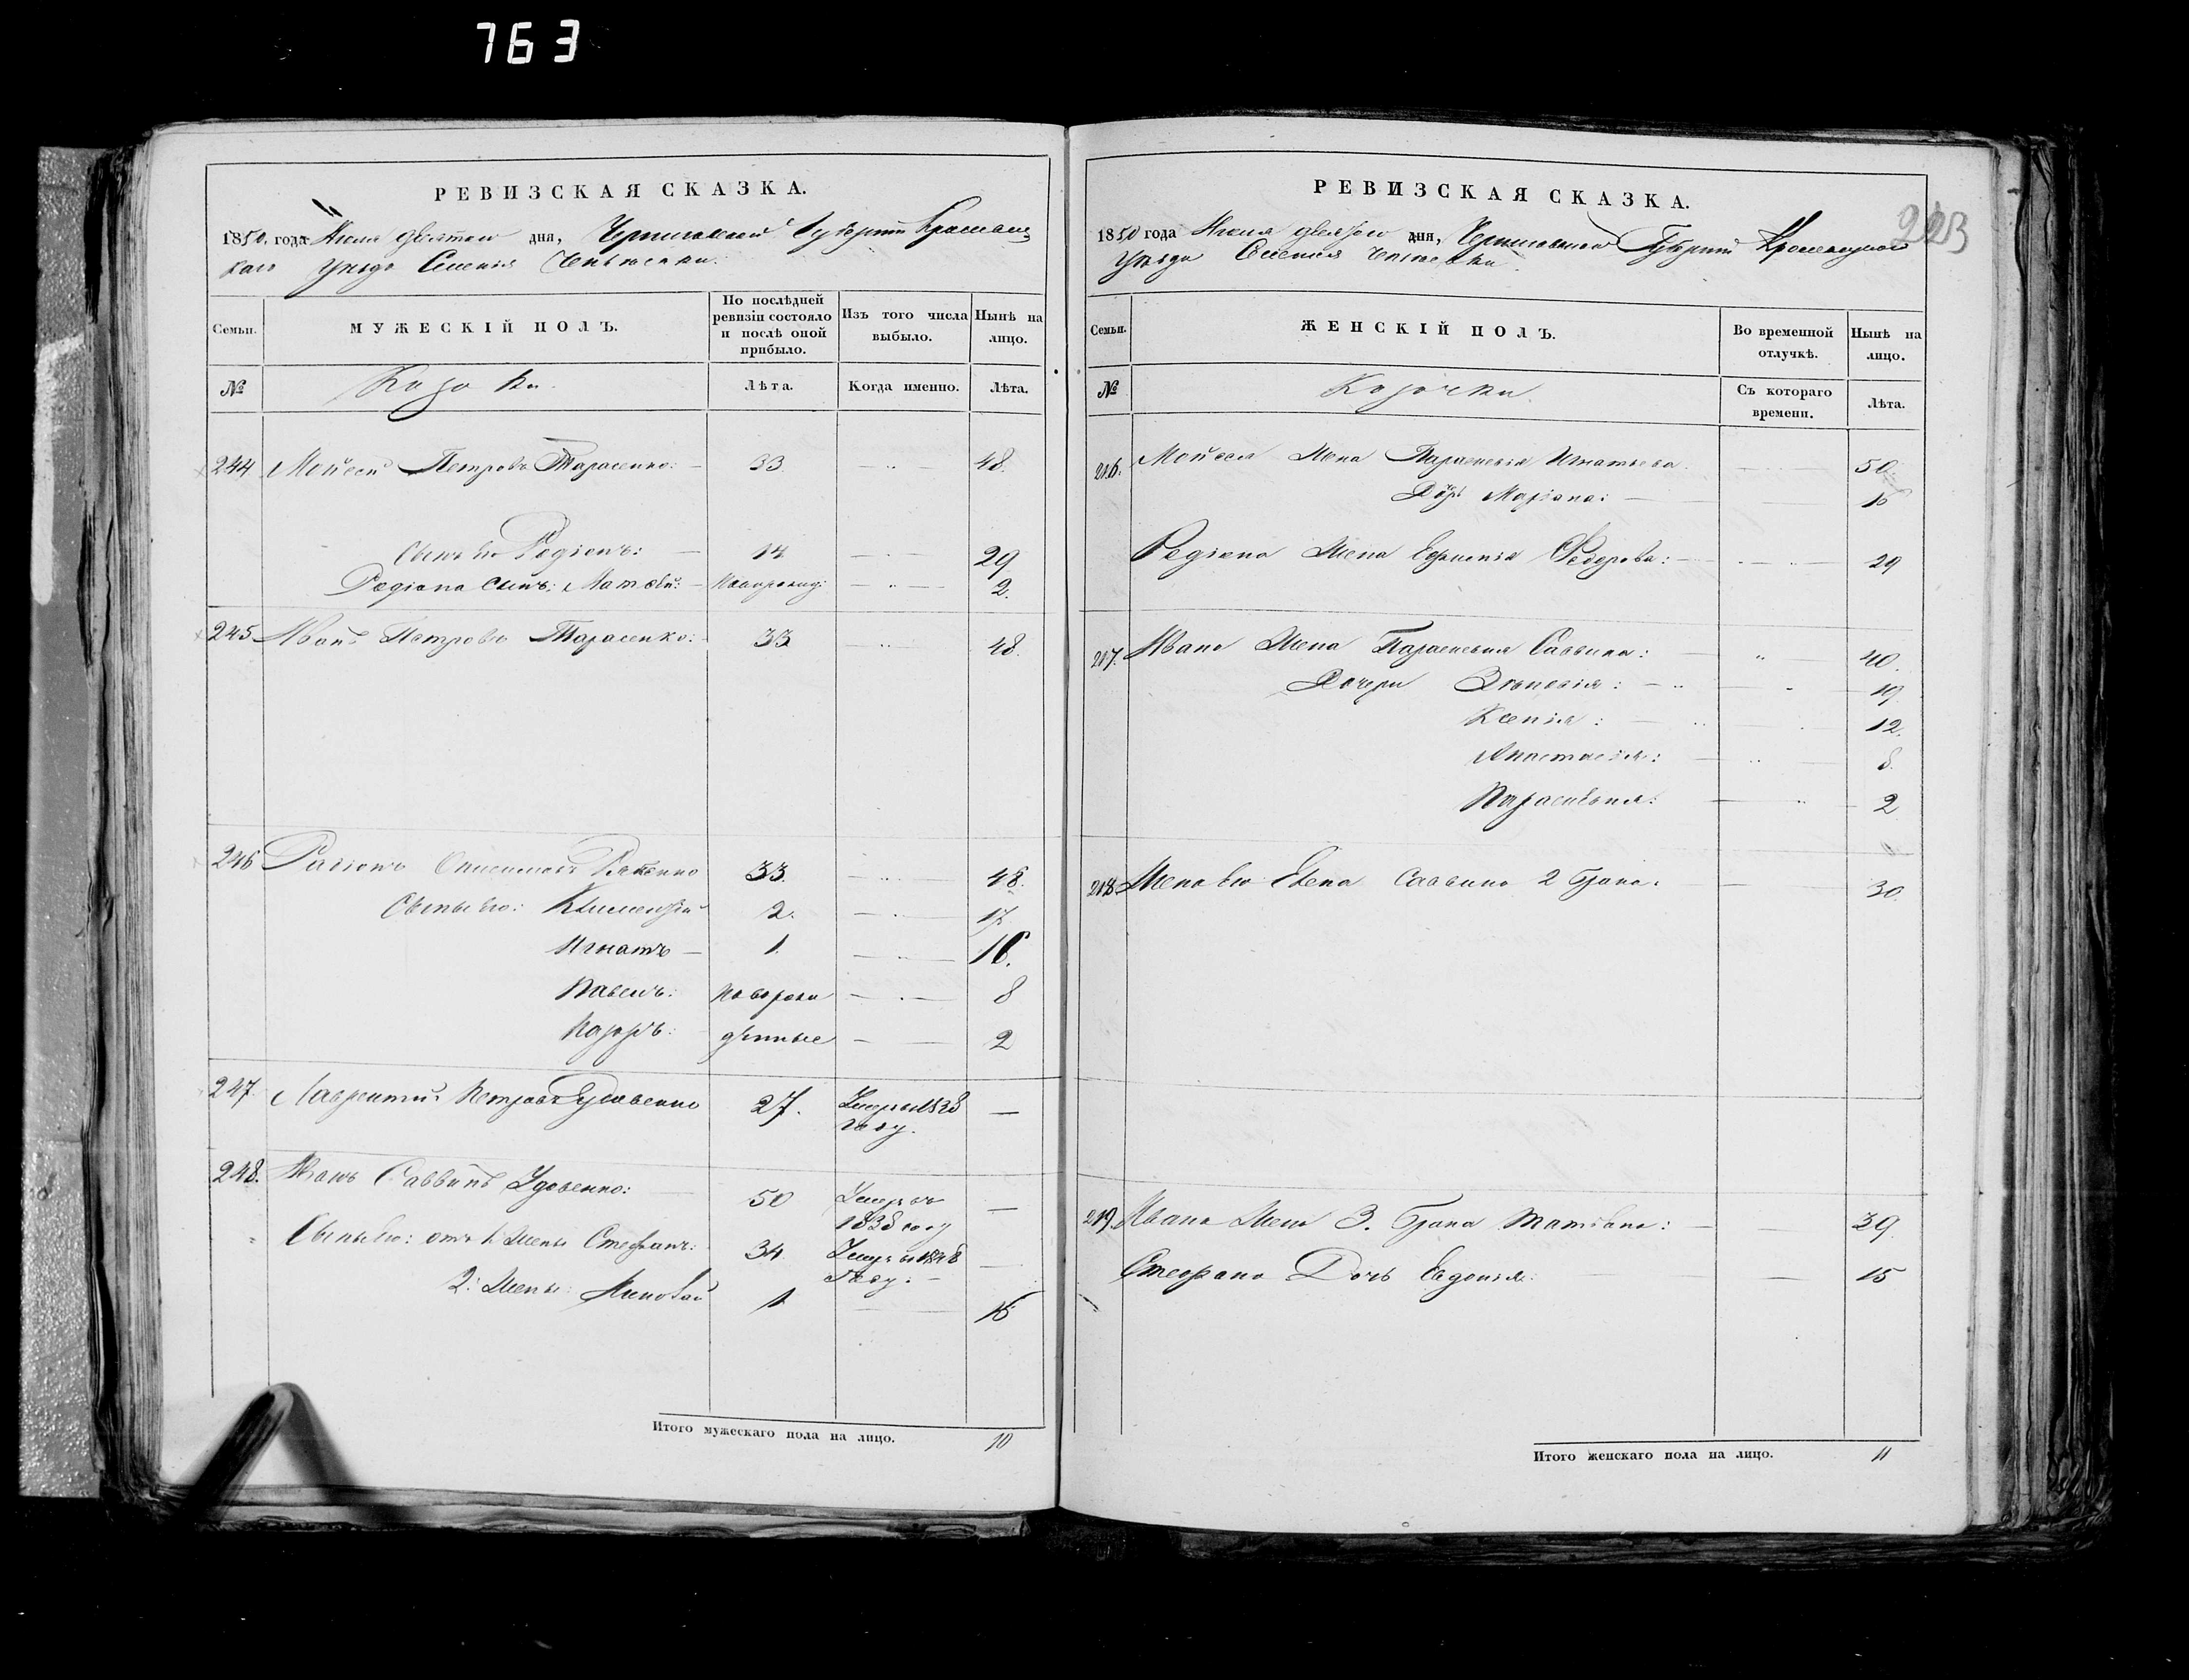 763
РЕВИЗСКАЯ СКАЗКА.
1850. года Июня девятого дня, Черниговской Губернии Кролевец
каго уезда Селения
Семьи.
МУЖЕСКІЙ ПОЛЪ.
По послѣдней ревизіи состояло и послѣ оной прибыло.
Изъ того числа выбыло.
Нынѣ на лицо.
№
Козаки.
Лѣта.
Когда именно.
Лѣта.
244 Мойсей Петровъ Тарасенко: 33. 48.
Сынъ его Родіонъ: 14 29
Родіона сынъ: Матвѣй: Новорожд: 2.
245 Иванъ Петровъ Тарасенко: 33 48.
246 Родіонъ Онисимовъ 33. 48.
Сыны его: Климентій 2. 17
Игнатъ 1. 16.
Павелъ: новорож 8
Назаръ: денные 2
247. Лаврентий Петровъ Удовенко 27. Умеръ 1838 году. —
248. Иванъ Саввинъ Удовенко: 50 Умеръ 1838 году —
Сыны его: отъ 1 Жены Стефанъ: 34 Умеръ 1848 году. —
2: Жены: 1 16
Итого мужескаго пола на лицо. 10
223
РЕВИЗСКАЯ СКАЗКА.
1850 года Июня девятого дня, Черниговской Губернии Кролевецкого
уезда Селения
Семьи.
ЖЕНСКІЙ ПОЛЪ.
Во временной отлучкѣ.
Нынѣ на лицо.
№
Козачки.
Съ котораго времени.
Лѣта.
216. Мойсея Жена Параскевія Игнатьева 50.
Дочь Маріана: 16
Родіона Жена Евфимія Федорова: 29
217. Ивана Жена Параскевия Саввина: 40.
Дочери Зѣновія: 19
Ксенія: 12.
Анастасія: 8.
Параскевия: 2
218 Жена его Елена Саввина 2 брака. 30.
219 Ивана Жена 3. брака Татіана: 39.
Стефана Дочь Евдокія: 15
Итого женскаго пола на лицо. 11